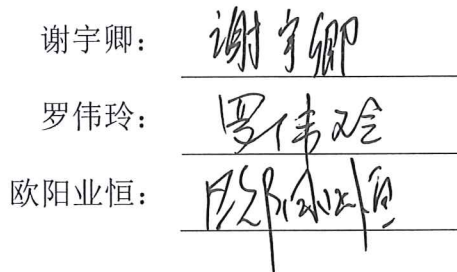 谢宇卿： 谢宇卿
罗伟玲： 罗伟玲
欧阳业恒： 欧阳业恒